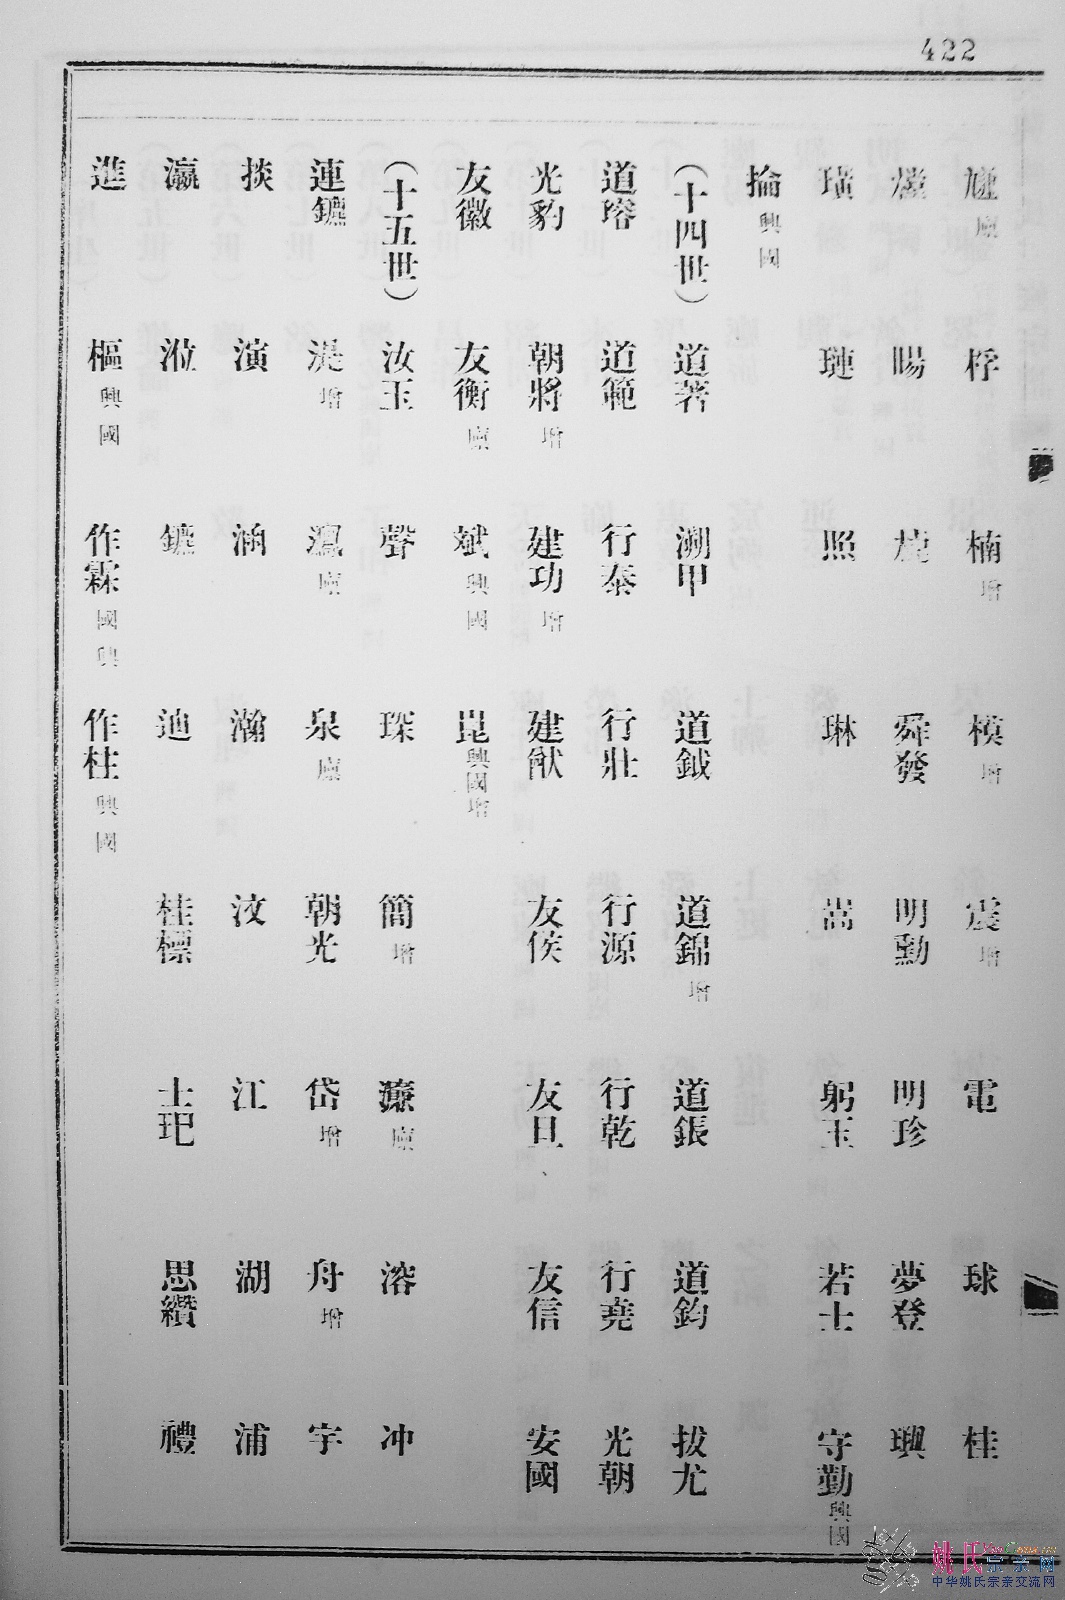 422
廩 桴 楠增 模增 震增 電 球 桂
暘 燒 舜發 明勳 明珍 夢登 璵
璜 璉 照 琳 嵩 躬玉 若士 守勤興國
掄興國
(十四世) 道著 溯甲 道鉞 道錦增 道鋹 道鈞 拔尤
道瑢 道範 行泰 行壯 行源 行乾 行堯 光朝
光豹 朝將增 建功增 建猷 友侯 友旦 友信 安國
友徽 友衡廩 斌興國 崑興國增
(十五世) 汝玉 聲 琛 簡增 濂廩 溶 冲
連鑣 湜增 廩 泉廩 朝光 岱增 舟增 宇
掞 演 涵 瀚 汶 江 湖 浦
瀛 鑣 迪 桂標 士玘 思纘 禮
進 樞興國 作霖國興 作柱興國
姚氏宗亲网
中华姚氏宗亲交流网